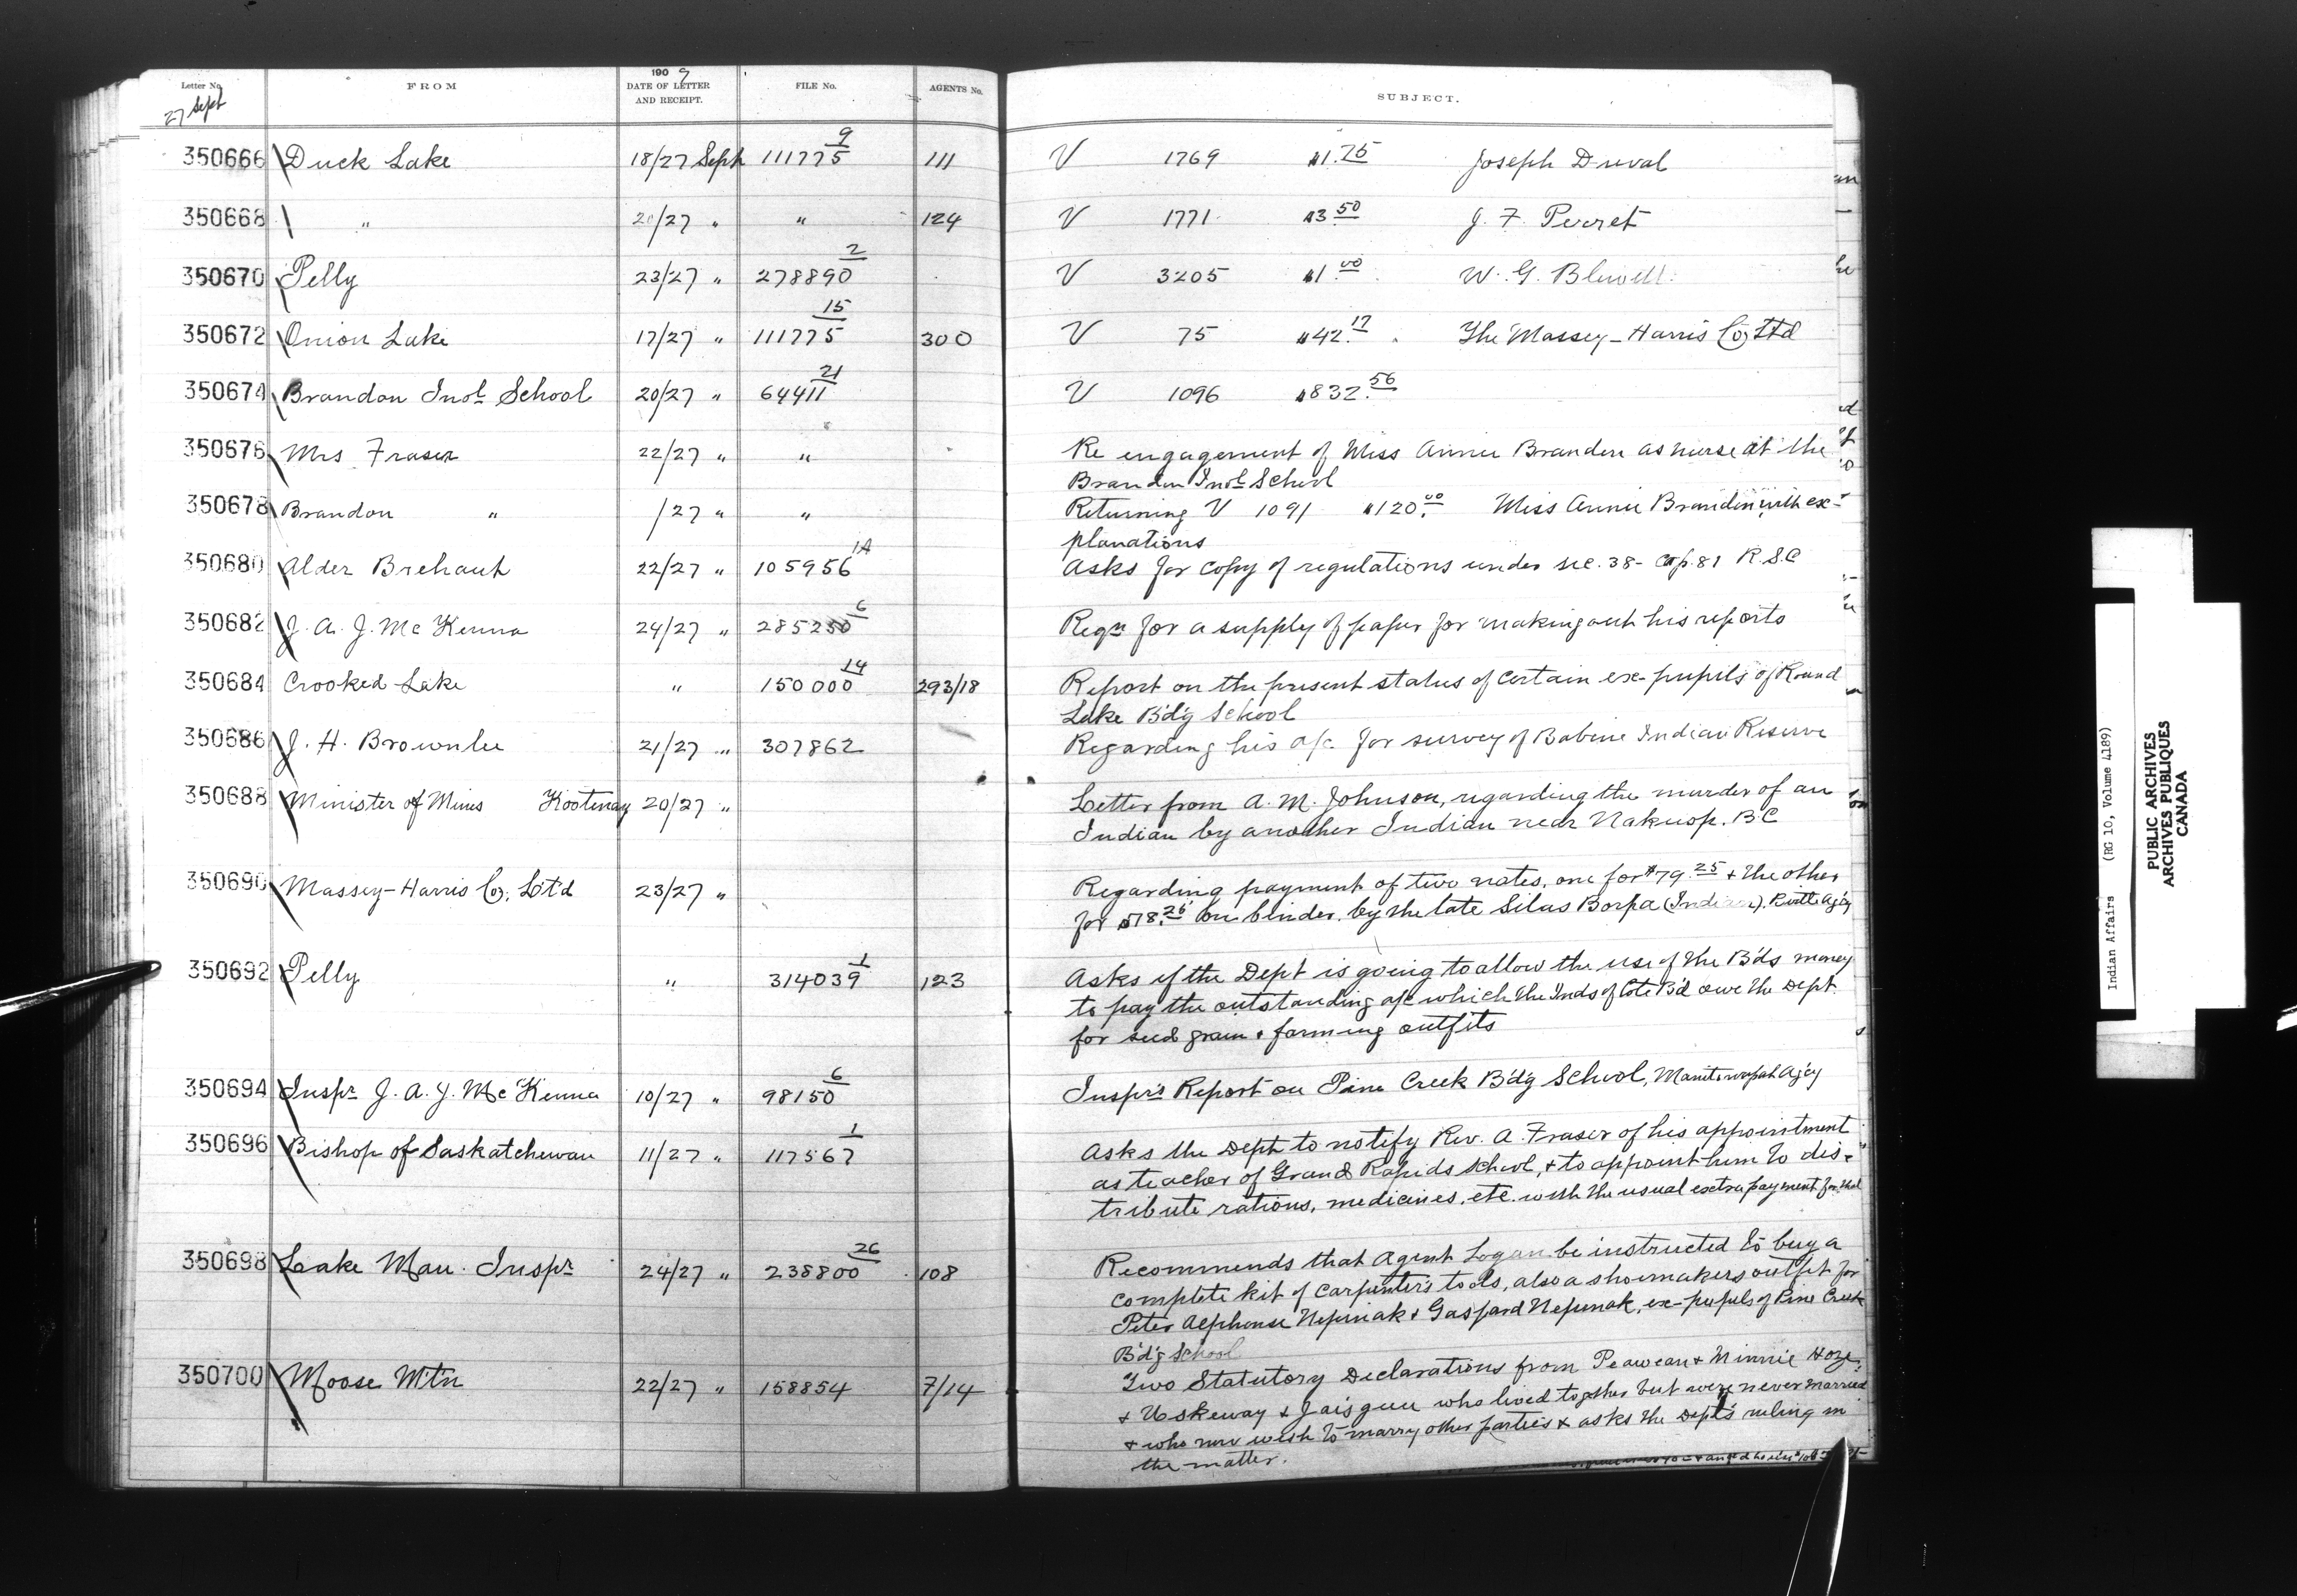 Letter No. FROM 1909 DATE OF LETTER AND RECEIPT. FILE No. AGENTS No. SUBJECT.
27 Sept
350666 Duck Lake 18/27 Sept 111775 9 111 V 1769 $1.75 Joseph Duval
350668 " 20/27 " " 124 V 1771 $3 50 J. F. Perret
350670 Pelly 23/27 " 278890 2 V 3205 $1 00 W. G. Blewell
350672 Onion Lake 17/27 " 111775 15 300 V 75 $42.17 The Massey-Harris Co Ltd
350674 Brandon Indl School 20/27 " 64411 21 V 1096 $832.56
350676 Mrs Fraser 22/27 " " Re engagement of Miss Annie Brandon as nurse at the
Brandon Indl School
350678 Brandon " /27 " " Returning V 1091 $120.00 Miss Annie Brandon with ex-
planations
350680 Alder Brehaut 22/27 " 105956 1A Asks for copy of regulations under sec. 38- Cap. 81 R.S.C
350682 J. A. J. McKenna 24/27 " 285250 6 Reqn for a supply of paper for making out his reports
350684 Crooked Lake " 150000 14 293/18 Report on the present status of certain ex-pupils of Round
Lake Bd'g School
350686 J. H. Brownlee 21/27 " 307862 Regarding his a/c for survey of Babine Indian Reserve
350688 Minister of Mines Kootenay 20/27 " Letter from A. M. Johnson, regarding the murder of an
Indian by another Indian near Nakusp. B C
350690 Massey-Harris Co, Lt'd 23/27 " Regarding payment of two notes, one for $79.25 & the other
for $78.25 on binder, by the late Silas (Indian). Agcy
350692 Pelly " 314039 1 123 Asks if the Dept is going to allow the use of the B'ds money
to pay the outstanding a/c which the Inds of Cote B'd owe the Dept.
for seed grain & farming outfits
350694 Inspr J. A. J. McKenna 10/27 " 98150 6 Inspr's Report on Pine Creek Bd'g School, Manitowapah Agcy
350696 Bishop of Saskatchewan 11/27 " 117567 1 Asks the Dept to notify Rev. A. Fraser of his appointment
as teacher of Grand Rapids School, & to appoint him to dis-
tribute rations, medicines, etc. with the usual extra payment for that
350698 Lake Man. Inspr 24/27 " 238800 26 108 Recommends that Agent Logan be instructed to buy a
complete kit of carpenter's tools, also a shoemakers outfit for
Peter Alphonse Nepinak & Gaspard Nepinak, ex-pupils of Pine Creek
Bd'g School
350700 Moose Mt'n 22/27 " 158854 7/14 Two Statutory Declarations from Peawean & Minnie
& Uskeway & who lived together but were never married
& who now wish to marry other parties & asks the Dept's ruling in
the matter.
Indian Affairs (RG 10, Volume 4189)
PUBLIC ARCHIVES
ARCHIVES PUBLIQUES
CANADA